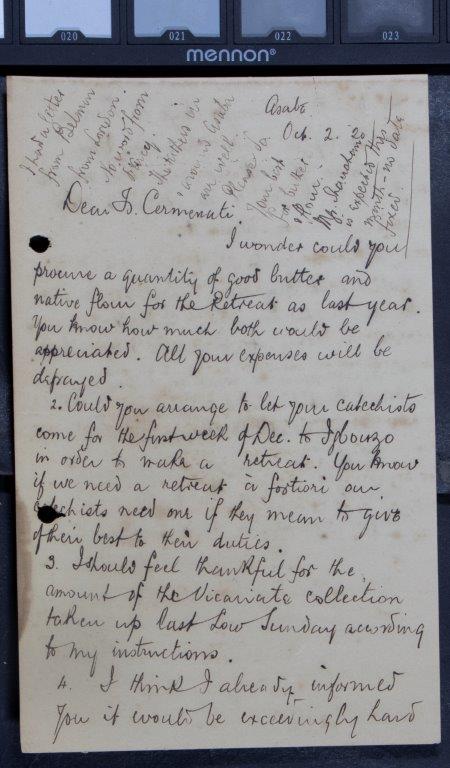 020 021 022 023
mennon®
Asaba
Oct. 2. '20
Dear Fr. Cermenati.
I wonder could you
procure a quantity of good butter and
native flour for the Retreat as last year.
You know how much both would be
appreciated. All your expenses will be
defrayed.
2. Could you arrange to let your catechists
come for the first week of Dec. to Igbouzo
in order to make a retreat. You know
if we need a retreat a fortiori our
catechists need one if they mean to give
of their best to their duties.
3. I should feel thankful for the
amount of the Vicariate collection
taken up last Low Sunday according
to my instructions.
4. I think I already informed
you it would be exceedingly hard
I had a letter
from
from London.
No word from
The Fathers in
& around Asaba
are well
Please do
your best
for butter
& flour.
Mgr.
is expected this
month - no date
fixed.